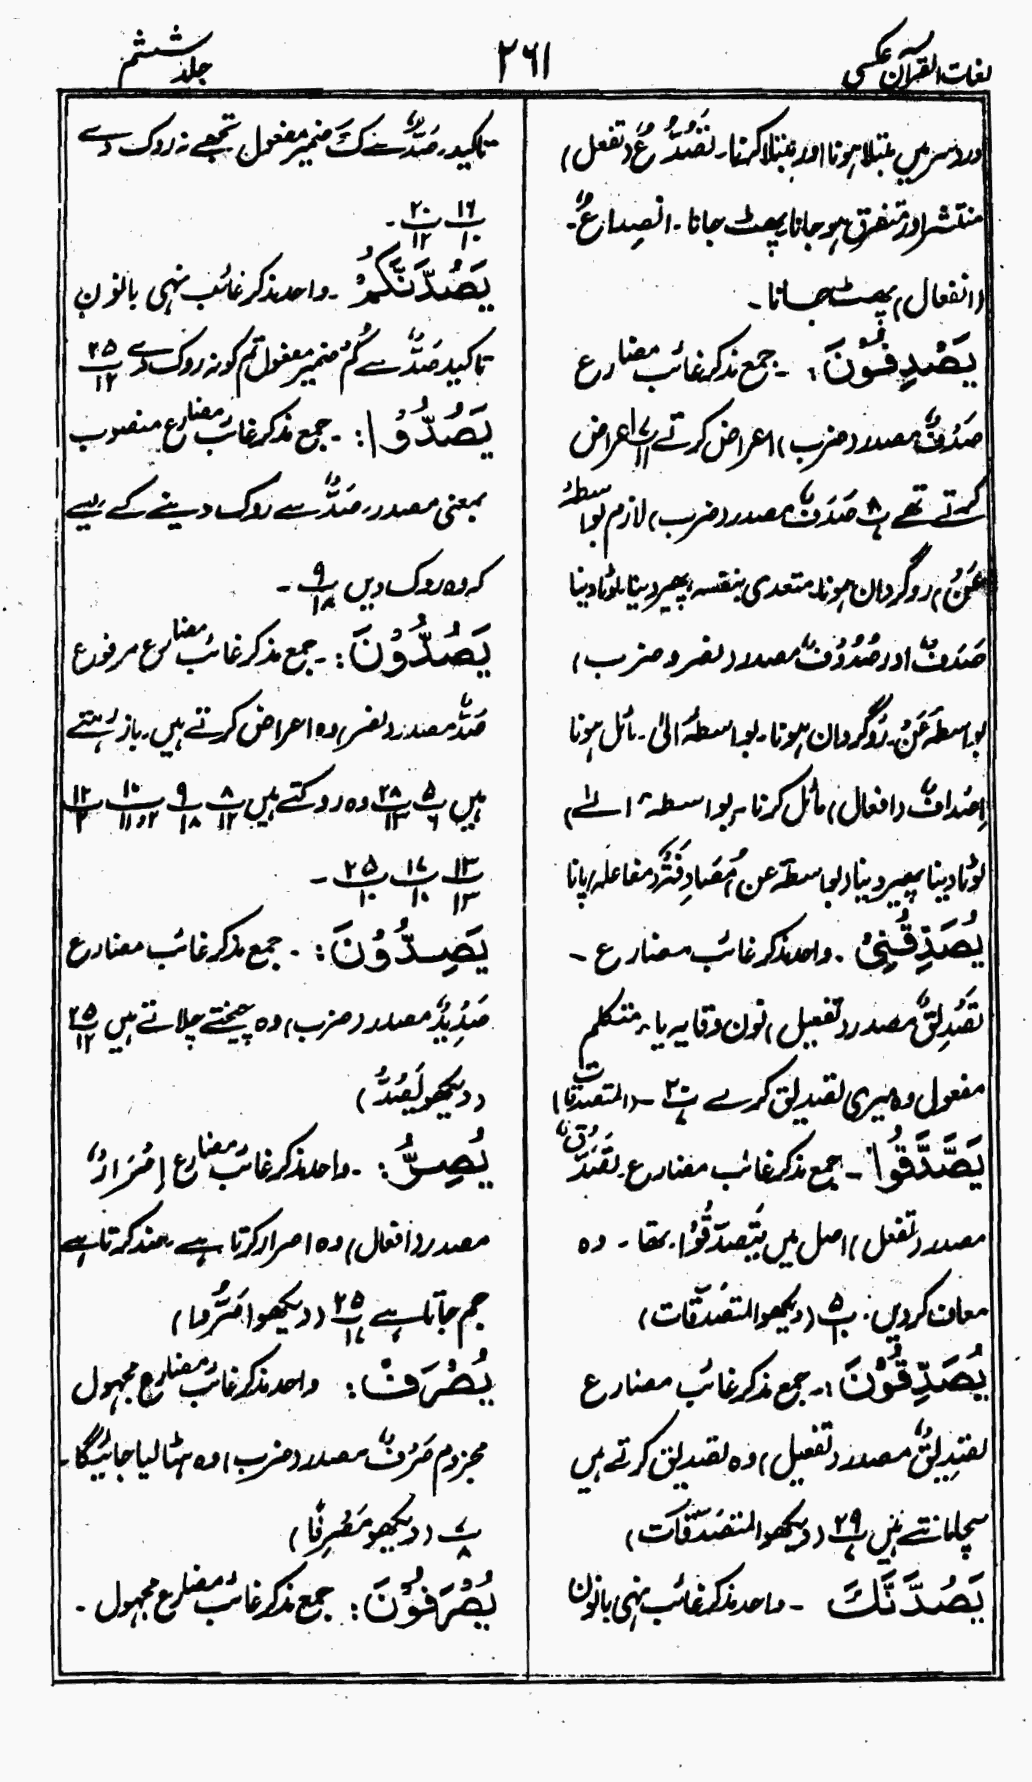 لغات القرآن عکسی
۲۶۱
جلد ششم
دردسر میں مبتلا ہونا اور مبتلا کرنا۔ تَصَدُّعٌ (تفعل)
منتشر اور متفرق ہو جانا پھٹ جانا۔ انصداعٌ۔
(انفعال) پھٹ جانا۔
یَصْدِفُوْنَ:۔ جمع مذکر غائب مضارع
صَدْفٌ مصدر (ضرب) اعراض کرتے اعراض
کرتے تھے پ ۸/۷ صَدَفٌ مصدر (ضرب) لازم بواسطہ
عَنْ) روگردان ہونا۔ متعدی بنفسہ پھیر دینا لوٹا دینا
صَدَفٌ اور صُدُوْفٌ مصدر (نصر و ضرب)
بواسطہ عَنْ۔ روگردان ہونا۔ بواسطہ الیٰ۔ مائل ہونا
اِصْدافٌ (افعال) مائل کرنا۔ بواسطہ الےٰ)
لوٹا دینا پھیر دینا (بواسطہ عن) مُصَادَفَۃٌ (مفاعلہ) پانا
یُصَدِّقُنِیْ۔ واحد مذکر غائب مضارع۔
تَصْدِیقٌ مصدر (تفعیل) نون وقایہ یا۔ متکلم
مفعول وہ میری تصدیق کرے پ ۲۰/۷۔ (المتصدقات)
یَصَّدَّقُوْا۔ جمع مذکر غائب مضارع۔ تَصَدُّقٌ
مصدر (تفعل) اصل میں یَتَصَدَّقُوْا۔ تھا۔ وہ
معاف کردیں۔ پ ۵/۱۰ (دیکھو المتصدقات)
یُصَدِّقُوْنَ:۔ جمع مذکر غائب مضارع
تصدِیقٌ مصدر (تفعیل) وہ تصدیق کرتے ہیں
سچا مانتے ہیں پ ۲۹/۷ (دیکھو المتصدقات)
یَصُدَّنَّكَ۔ واحد مذکر غائب نہی بانون
تاکید۔ صَدٌّ سے كَ ضمیر مفعول تجھے نہ روک دے
پ ۱۶/۱۰ پ ۲۰/۱۲۔
یَصُدَّنَّکُمْ۔ واحد مذکر غائب نہی بانون
تاکید صَدٌّ سے کُمْ ضمیر مفعول تم کو نہ روک دے پ ۲۵/۱۲
یَصُدُّوْا:۔ جمع مذکر غائب مضارع منصوب
بمعنی مصدر۔ صَدٌّ سے روک دینے کے لیے
کہ وہ روک دیں پ ۹/۱۸۔
یَصُدُّوْنَ:۔ جمع مذکر غائب مضارع مرفوع
صَدٌّ مصدر (نصر) وہ اعراض کرتے ہیں۔ باز رہتے
ہیں پ ۵/۶ پ ۲۸/۱۳ وہ روکتے ہیں پ ۸/۱۲ پ ۹/۱۸ پ ۱۰/۲و۱۱ پ ۱۲/۲
پ ۱۳/۱۳ پ ۱۷/۱۰ پ ۲۵/۱۰۔
یَصِدُّوْنَ:۔ جمع مذکر غائب مضارع
صَدِیْدٌ مصدر (ضرب) وہ چیختے چلاتے ہیں پ ۲۵/۱۲
(دیکھو یَصُدُّ)
یُصِرُّ:۔ واحد مذکر غائب مضارع اِصْرَارٌ
مصدر (افعال) وہ اصرار کرتا ہے۔ ضد کرتا ہے
جم جاتا ہے پ ۲۵/۱۷ (دیکھو اَصَرُّوا)
یُصْرَفْ: واحد مذکر غائب مضارع مجہول
مجزوم صَرْفٌ مصدر (ضرب) وہ ہٹا لیا جائیگا۔
پ ۷/۸ (دیکھو مَصْرِفًا)
یُصْرَفُوْنَ: جمع مذکر غائب مضارع مجہول۔